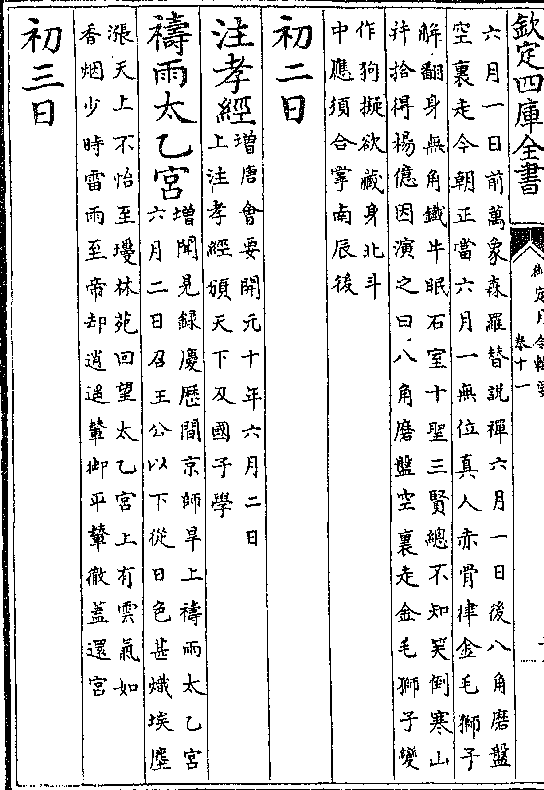 欽定四庫全書
御定月令輯要
卷十一
六月一日前萬象森羅替説禪六月一日後八角磨盤
空裏走今朝正當六月一無位真人赤骨律金毛獅子
解翻身無角鐵牛眠石室十聖三賢總不知笑倒寒山
拌拾得楊億因演之曰八角磨盤空裏走金毛獅子變
作狗擬欲藏身北斗
中應須合掌南辰後
初二日
注孝經増唐會要開元十年六月二日
上注孝經頒天下及國子學
禱雨太乙宮増聞見録慶厯間京師旱上禱雨太乙宮
六月二日召王公以下從日色甚熾埃塵
漲天上不怡至瓊林苑回望太乙宮上有雲氣如
香烟少時雷雨至帝却逍遥輦御平輦徹蓋還宮
初三日